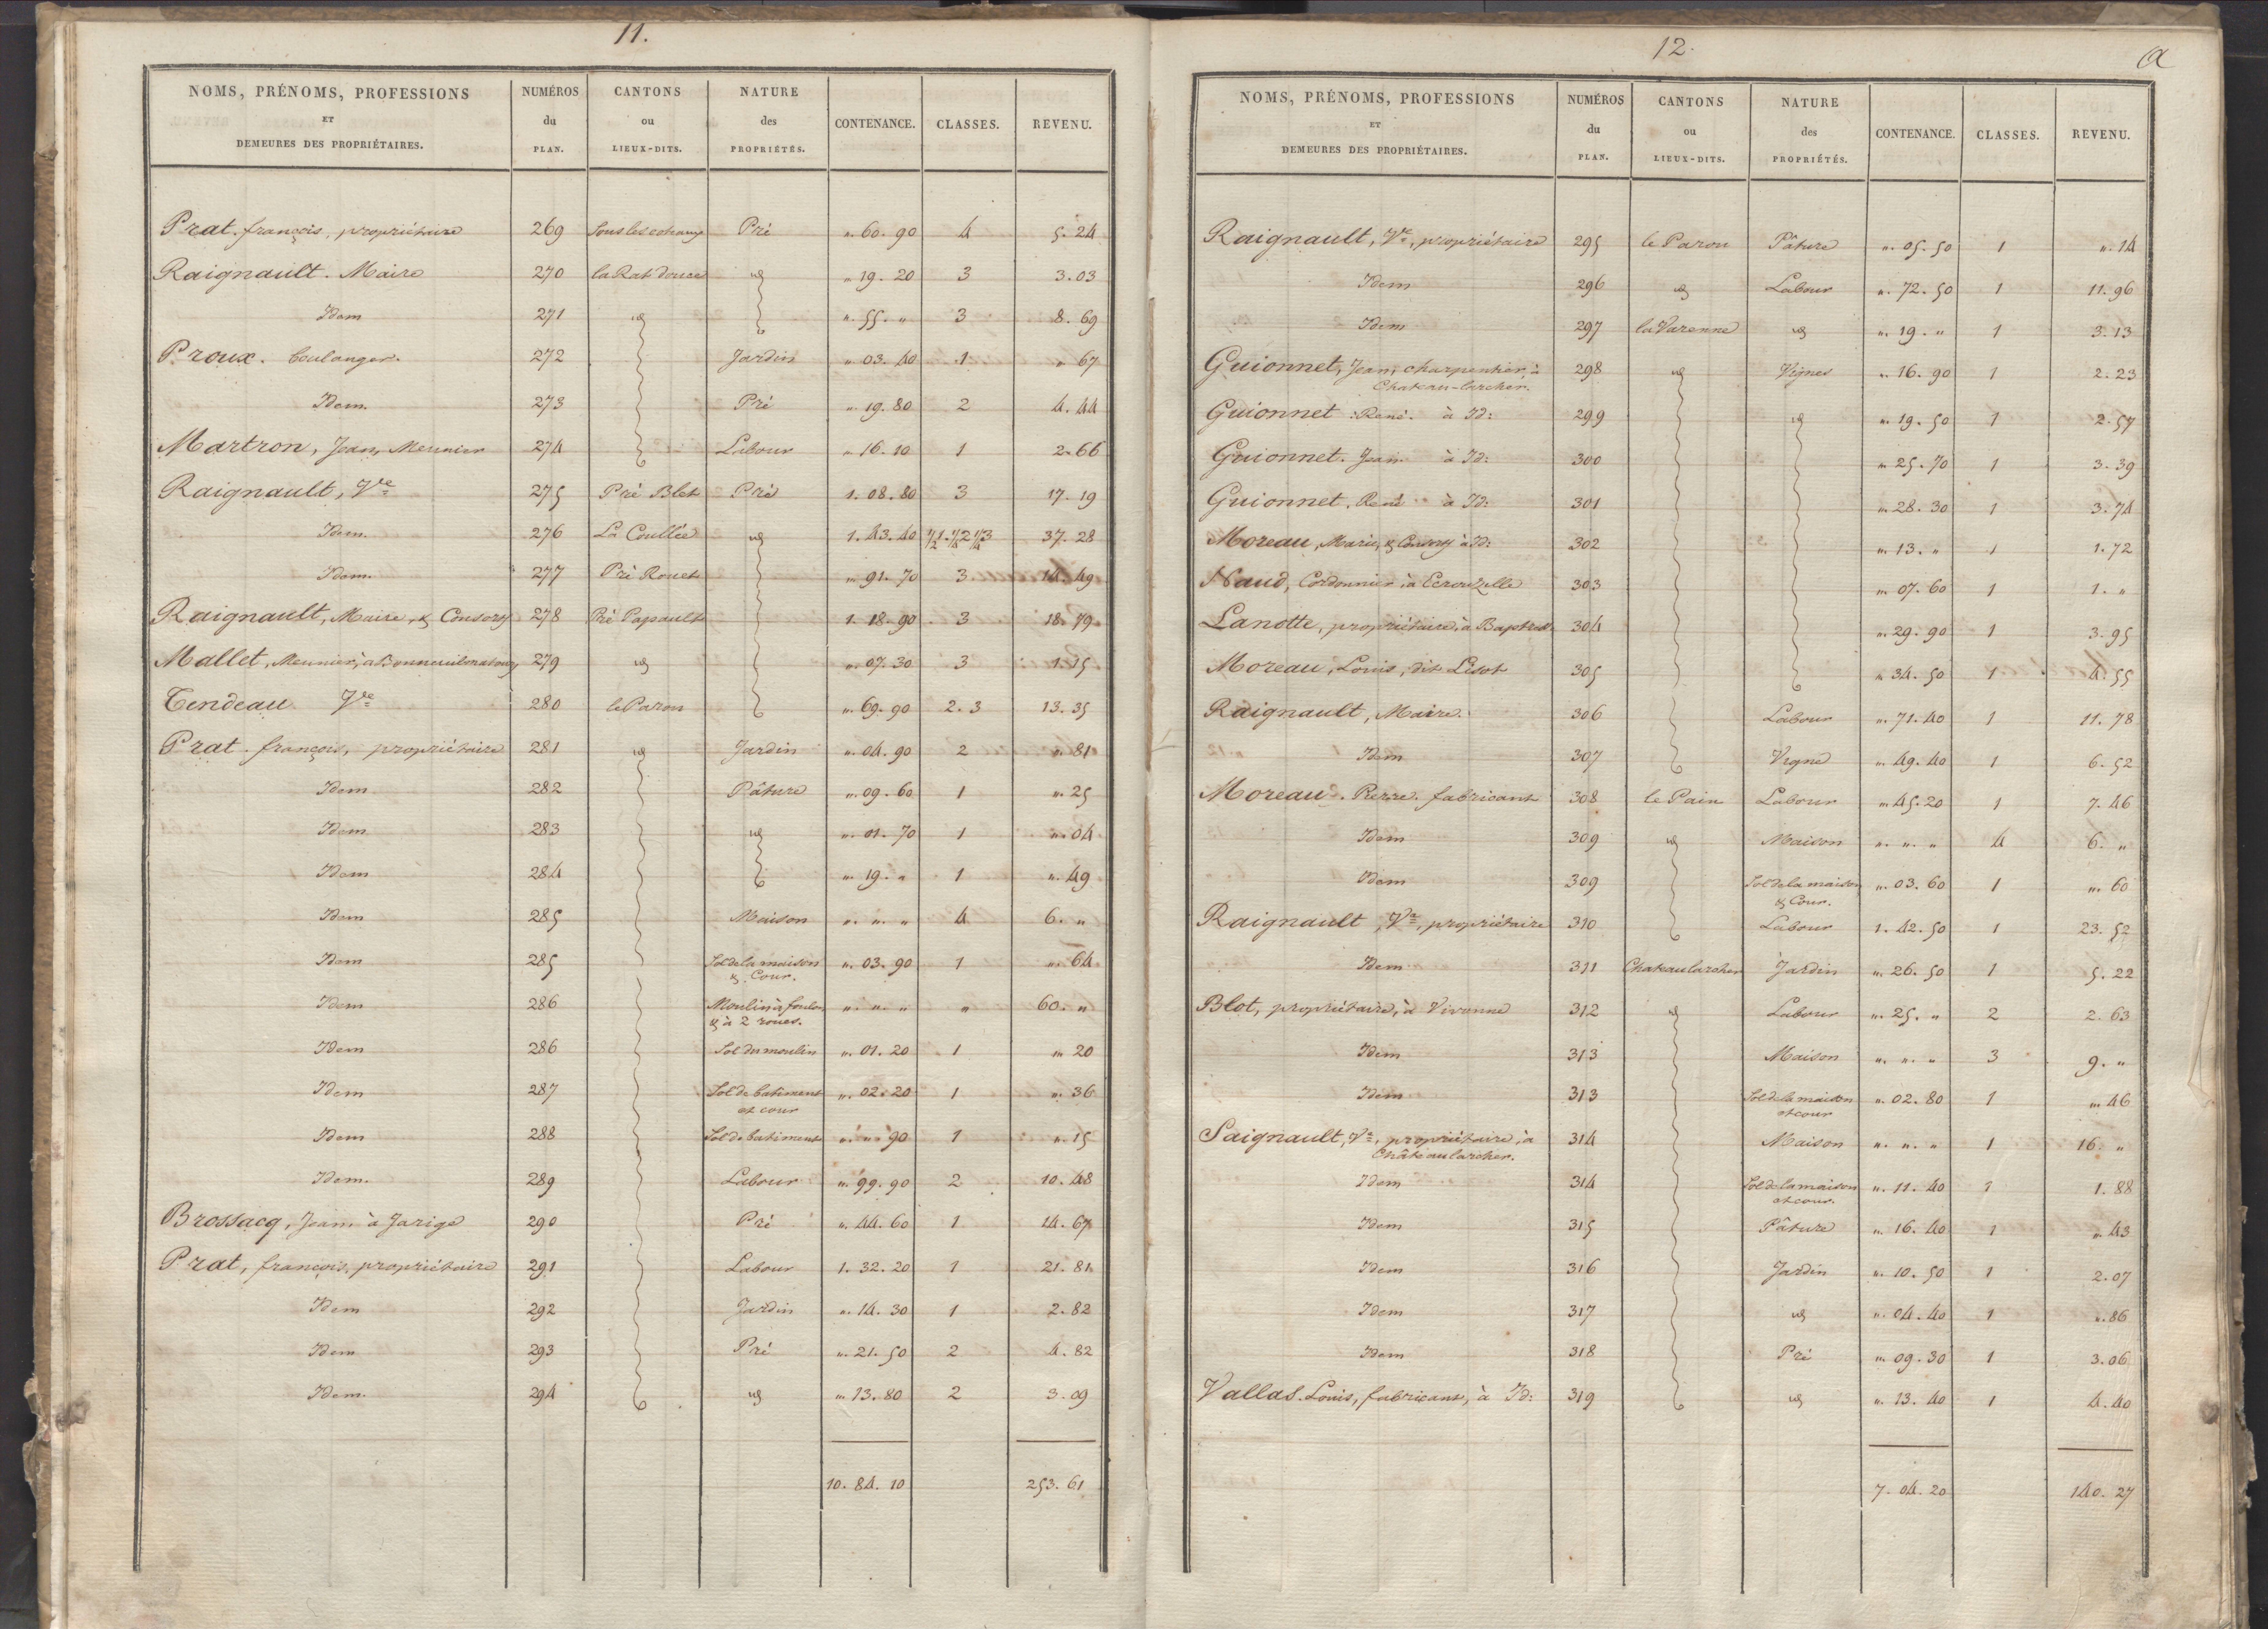 11.
NOMS, PRÉNOMS, PROFESSIONS ET DEMEURES DES PROPRIÉTAIRES. NUMÉROS du PLAN. CANTONS ou LIEUX-DITS. NATURE des PROPRIÉTÉS. CONTENANCE. CLASSES. REVENU.
Prat. françois, propriétaire 269 Pré ". 60. 90 4 5. 24
Raignault. Maire 270 la Rat douce id ". 19. 20 3 3. 03
Idem 271 id ". 55. " 3 8. 69
Proux. boulanger. 272 Jardin ". 03. 40 1 ". 67
Idem. 273 Pré ". 19. 80 2 4. 44
Martron, Jean, Meunier 274 Labour ". 16. 10 1 2. 66
Raignault, Ve 275 Pré Blet Pré 1. 08. 80 3 17. 19
Idem. 276 La Coullée id 1. 43. 40 1/2 1. 1/4 2 1/4 3 37. 28
Idem. 277 Pré Rouet ". 91. 70 3 14. 49
Raignault, Maire, & Consors 278 Pré Papault 1. 18. 90 3 18. 79
Mallet, Meunier, à Bonneuilmatours 279 id ". 07. 30 3 1. 15
Tendeau Ve 280 le Paron ". 69. 90 2. 3 13. 35
Prat. françois, propriétaire 281 id Jardin ". 04. 90 2 ". 81
Idem 282 Pâture ". 09. 60 1 ". 25
Idem 283 id ". 01. 70 1 ". 04
Idem 284 ". 19. " 1 ". 49
Idem 285 Maison ". ". " 4 6. "
Idem 285 Sol de la maison & Cour. ". 03. 90 1 ". 64
Idem 286 Moulin à foulon & à 2 roues. ". ". " " 60. "
Idem 286 Sol du moulin ". 01. 20 1 ". 20
Idem 287 Sol de batiment et cour ". 02. 20 1 ". 36
Idem 288 Sol de batiment ". ". 90 1 ". 15
Idem. 289 Labour ". 99. 90 2 10. 48
Brossacq, Jean, à Jarige 290 Pré ". 44. 60 1 14. 67
Prat, françois, propriétaire 291 Labour 1. 32. 20 1 21. 81
Idem 292 Jardin ". 14. 30 1 2. 82
Idem 293 Pré ". 21. 50 2 4. 82
Idem. 294 id ". 13. 80 2 3. 09
10. 84. 10 253. 61
12. a
NOMS, PRÉNOMS, PROFESSIONS ET DEMEURES DES PROPRIÉTAIRES. NUMÉROS du PLAN. CANTONS ou LIEUX-DITS. NATURE des PROPRIÉTÉS. CONTENANCE. CLASSES. REVENU.
Raignault, Ve, propriétaire 295 le Paron Pâture ". 05. 50 1 ". 14
Idem 296 id Labour ". 72. 50 1 11. 96
Idem 297 la Varenne id ". 19. " 1 3. 13
Guionnet, Jean, charpentier, à Chateau-larcher. 298 id Vignes ". 16. 90 1 2. 23
Guionnet. René. à Id: 299 id ". 19. 50 1 2. 57
Guionnet. Jean à Id: 300 ". 25. 70 1 3. 39
Guionnet. René à Id: 301 ". 28. 30 1 3. 74
Moreau, Marie, & Consors à Id: 302 ". 13. " 1 1. 72
Naud, Cordonnier, à Ecrouzelle 303 ". 07. 60 1 1. "
Lanotte, propriétaire, à 304 ". 29. 90 1 3. 95
Moreau, Louis, dit Lisot 305 ". 34. 50 1 4. 55
Raignault, Maire. 306 Labour ". 71. 40 1 11. 78
Idem 307 Vigne ". 49. 40 1 6. 52
Moreau. Pierre. fabricant 308 le Pain Labour ". 45. 20 1 7. 46
Idem 309 id Maison ". ". " 4 6. "
Idem 309 Sol de la maison & Cour. ". 03. 60 1 ". 60
Raignault, Ve, propriétaire 310 Labour 1. 42. 50 1 23. 52
Idem 311 Chateaularcher Jardin ". 26. 50 1 5. 22
Blot, propriétaire, à Vivonne 312 id Labour ". 25. " 2 2. 63
Idem 313 Maison ". ". " 3 9. "
Idem 313 Sol de la maison et cour ". 02. 80 1 ". 46
Saignault, Ve, propriétaire, à Châteaularcher. 314 Maison ". ". " 1 16. "
Idem 314 Sol de la maison et cour. ". 11. 40 1 1. 88
Idem 315 Pâture ". 16. 40 1 ". 43
Idem 316 Jardin ". 10. 50 1 2. 07
Idem 317 id ". 04. 40 1 ". 86
Idem 318 Pré ". 09. 30 1 3. 06
Vallas. Louis, fabricant, à Id: 319 id ". 13. 40 1 4. 40
7. 04. 20 140. 27